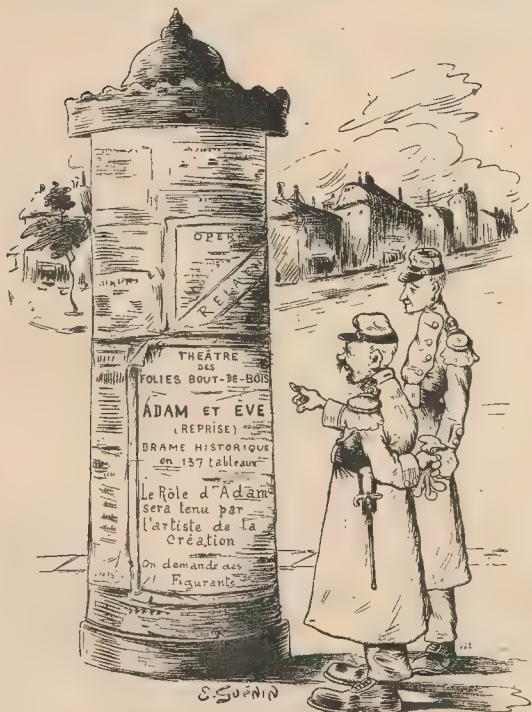 OPERA
RELACHE
THEÂTRE
DES
FOLIES BOUT-DE-BOIS
ADAM ET ÈVE
(REPRISE)
DRAME HISTORIQUE
en 137 tableaux
Le Rôle d'Adam
sera tenu par
l'artiste de la
Création
On demande des
Figurants
E. GUÉNIN